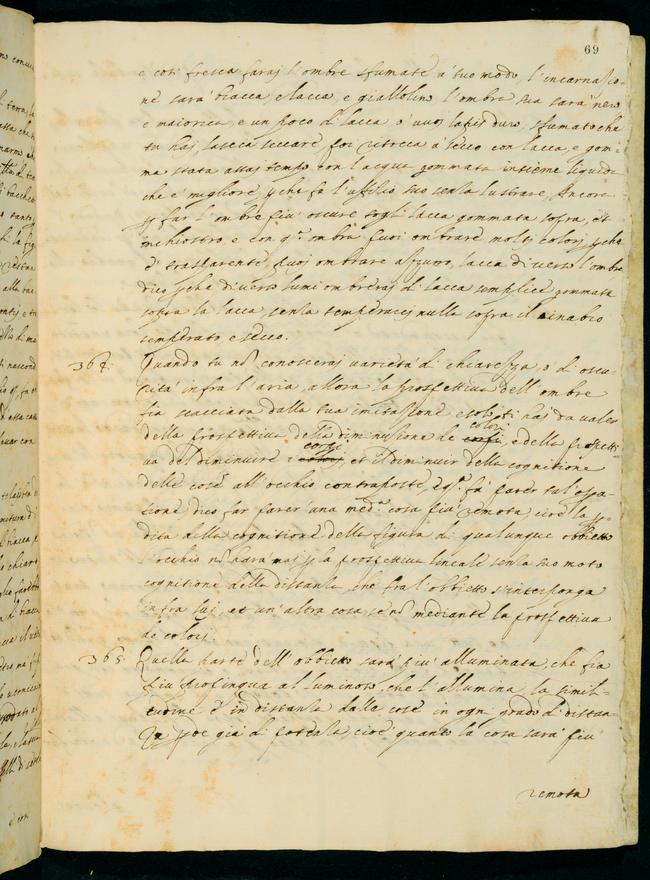 69
e così fresca faraj l'ombre sfumate à tuo modo l'incarnatio-
ne sarà biacca e lacca, e giallolino l'ombra sua sarà nero
e maiorica, e un poco di lacca, ò vuoi lapis duro, sfumato che
tu haj lascia seccare, poi ritocca à secco con lacca, e gom-
ma stata assaj tempo con l'acqua gommata insieme liquida
che è migliore, pche fà l'offitio suo senza lustrare, Ancora
p far l'ombre più oscure togli lacca gommata sopra, et
inchiostro, e con q.ª ombra puoi ombrare moltj colorj, pche
è trasparente, puoj ombrare azurro, lacca di verso l'ombre
dico pche diverso lumi ombreraj di lacca semplice gommata
sopra la lacca senza tempera, nulla sopra il cinabro
temperato e secco.
364. Quando tu nõ conosceraj varietà di chiarezza, ò di oscu-
rità infra l'aria, allora la prospettiva dell'ombre
fia scacciata dalla tua imitazione, e solo ti haj da valer
della prospettiva della diminuzione de colorj, e della prospetti-
va del diminuire i corpi, et il diminuir della cognitione
delle cose all'occhio contraposte, e q.ª fà parer
dico far parer' una med.ª cosa più remota, cioè la p-
dita della cognitione della figura di qualunque obbietto
l'occhio nõ harà maj p la prospettiva lineale senza suo moto
cognitione della distanza, che fra l'obbietto s'interponga
infra luj, et un'altra cosa se nõ mediante la prospettiva
de colorj.
365. Quella parte dell'obbietto sarà più alluminata, che fia
più propinqua al luminoso, che l'allumina la simili-
tudine è in distanza delle cose in ogni grado di distan-
za pde già di cioè quanto la cosa sarà più
remota